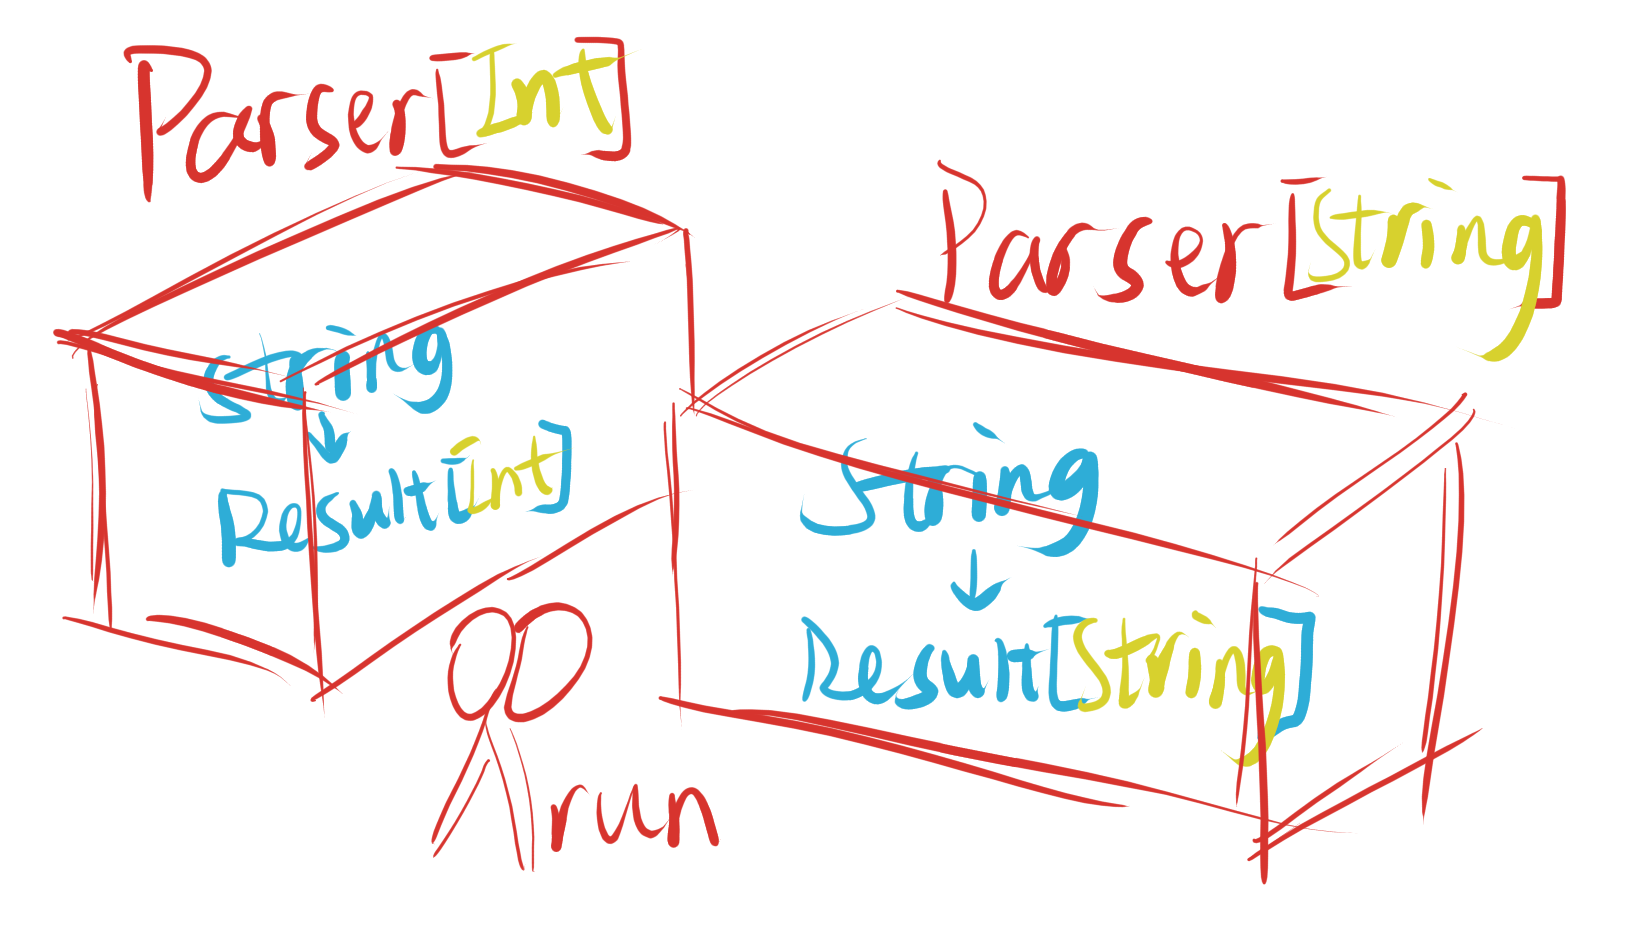 Parser[Int]
String
↓
Result[Int]
Parser[String]
String
↓
Result[String]
run